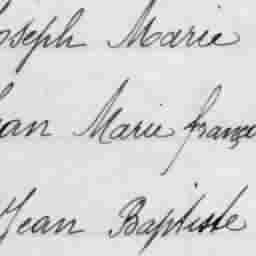 Joseph Marie
Jean Marie françoi
Jean Baptiste